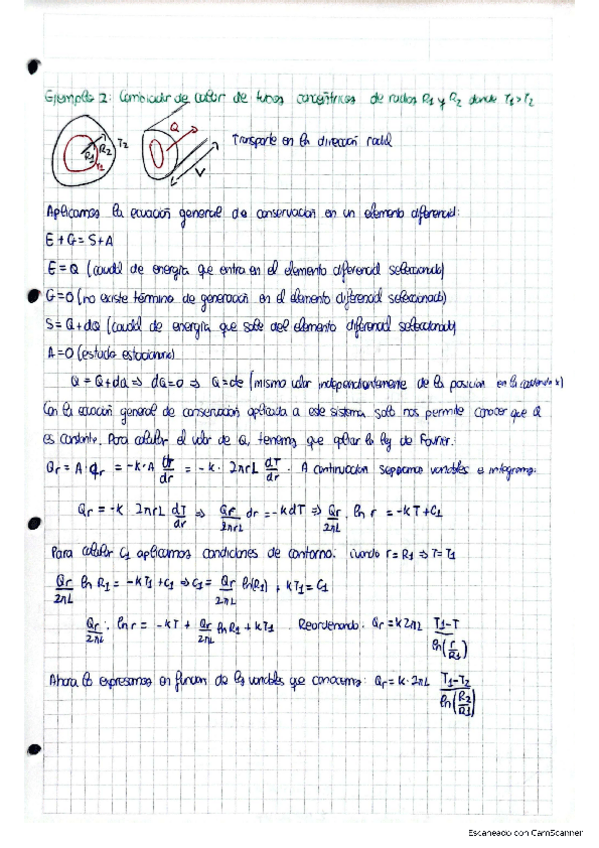 Ejemplo 2: Cambiador de calor de tubos concéntricos de radios R1 y R2 donde T1>T2
R1 R2 T2
Q
L
Transporte en la dirección radial
Aplicamos la ecuación general de conservación en un elemento diferencial:
E + G = S + A
E = Q (caudal de energía que entra en el elemento diferencial seleccionado)
G = 0 (no existe término de generación en el elemento diferencial seleccionado)
S = Q + dQ (caudal de energía que sale del elemento diferencial seleccionado)
A = 0 (estado estacionario)
Q = Q + dQ ⇒ dQ = 0 ⇒ Q = cte (mismo valor independientemente de la posición en la coordenada x)
Con la ecuación general de conservación aplicada a este sistema solo nos permite conocer que Q
es constante. Para calcular el valor de Q, tenemos que aplicar la ley de Fourier.
Qr = A · qr = -k · A dT/dr = -k · 2πrL dT/dr . A continuación separamos variables e integramos:
Qr = -k 2πrL dT/dr ⇒ Qr/2πrL dr = -k dT ⇒ Qr/2πL · ln r = -kT + C1
Para calcular C1 aplicamos condiciones de contorno: cuando r = R1 ⇒ T = T1
Qr/2πL ln R1 = -kT1 + C1 ⇒ C1 = Qr/2πL ln(R1) + kT1 = C1
Qr/2πL · ln r = -kT + Qr/2πL ln R1 + kT1 . Reordenando: Qr = k2πL T1-T/ln(r/R1)
Ahora lo expresamos en función de las variables que conocemos: Qr = k · 2πL T1-T2/ln(R2/R1)
Escaneado con CamScanner